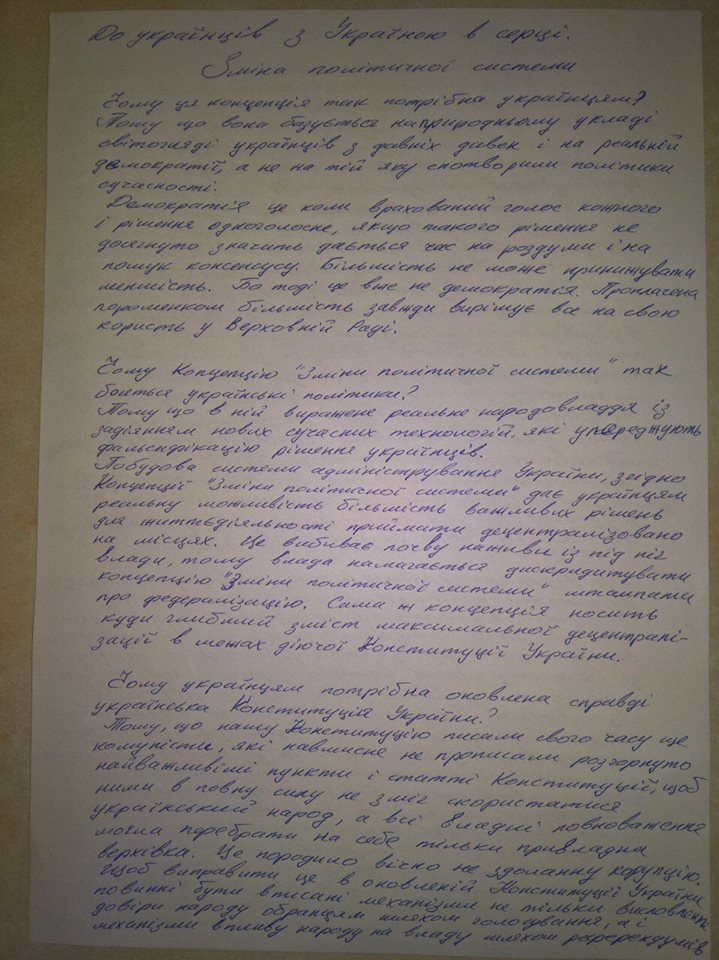 До українців з Україною в серці.
Зміна політичної системи
Чому ця концепція так потрібна українцям?
Тому що вона базується на природньому укладі
світогляді українців з давніх давен і на реальній
демократії, а не на тій яку спотворили політики
сучасності.
Демократія це коли врахований голос кожного
і рішення одноголосне, якщо такого рішення не
досягнуто значить дається час на роздуми і на
пошук консенсусу. Більшість не може принижувати
меншість. Бо тоді це вже не демократія. Проплачена
пороменком більшість завжди вирішує все на свою
користь у Верховній Раді.
Чому Концепцію "Зміни політичної системи" так
бояться українські політики?
Тому що в ній виражене реальне народовладдя із
задіянням нових сучасних технологій, які упереджують
фальсифікацію рішення українців.
Побудова системи адміністрування України, згідно
Концепції "Зміни політичної системи" дає українцям
реальну можливість більшість важливих рішень
для життєдіяльності приймати децентралізовано
на місцях. Це вибиває почву наживи із під ніг
влади, тому влада намагається дискридитувати
концепцію "Зміни політичної системи" штампами
про федералізацію. Сама ж концепція носить
куди глибший зміст максимальної децентралі-
зації в межах діючої Конституції України.
Чому українцям потрібна оновлена справді
українська Конституція України?
Тому, що нашу Конституцію писали свого часу ще
комуністи, які навмисне не прописали розгорнуто
найважливіші пункти і статті Конституції, щоб
ними в повну силу не зміг скористатися
український народ, а всі владні повноваження
могла перебрати на себе тільки привладна
верхівка. Це породило вічно не здоланну корупцію.
Щоб виправити це в оновленій Конституції України
повинні бути вписані механізми не тільки висловлення
довіри народу обранцям шляхом голосування, а і
механізми впливу народу на владу шляхом референдумів